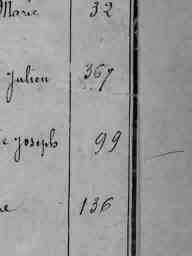 Marie 32
Julien 367
e Joseph 99
136